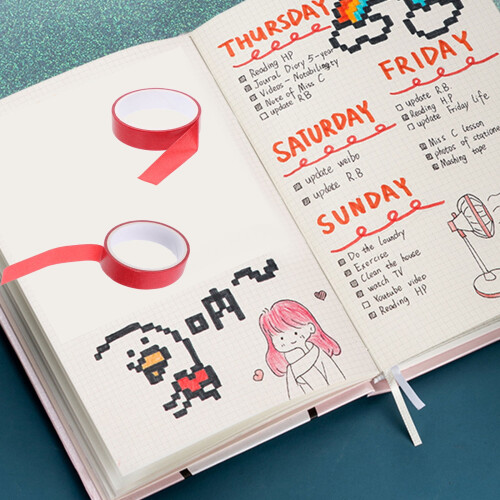 THURSDAY
Reading HP
Joural Diary 5-year
Videos - Notability
Note of Miss C
update RB
FRIDAY
update R.B
Reading H.P
update Friday life
Miss C lesson
photos of station
Mashing tape
SATURDAY
update weibo
update R.B
SUNDAY
Do the laundry
Exercise
Clean the house
watch TV
Youtube video
Reading HP